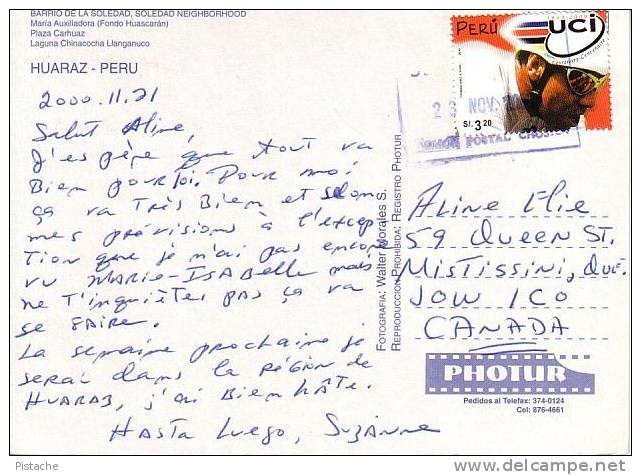 BARRIO DE LA SOLEDAD, SOLEDAD NEIGHBORHOOD
María Auxiliadora (Fondo Huascarán)
Plaza Carhuaz
Laguna Chinacocha Llanganuco
HUARAZ - PERU
2000.11.21
Salut Aline,
J'espère que tout va
Bien pour toi. Pour moi
ça va TRÈS Bien et selons
mes prévisions à l'excep
Tion que je n'ai pas encon
vu MARIE-ISABelle mais
ne T'inquiètes pas ça va
se faire.
La semaine prochaine je
serai dans la RÉGION de
HUARAZ, j'ai Bien hâte.
HASTA Luego, SUZANNE
FOTOGRAFIA: Walter Morales S.
REPRODUCCION PROHIBIDA: REGISTRO PHOTUR
PERÚ
UCI
1900-2000
S/. 3.20
NOV
POSTAL
ALINE Elie
59 QUEEN ST.
MISTISSINI, QUE.
JOW ICO
CANADA
PHOTUR
Pedidos al Telefax: 374-0124
Cel: 876-4661
Pistache
http://www.delcampe.net